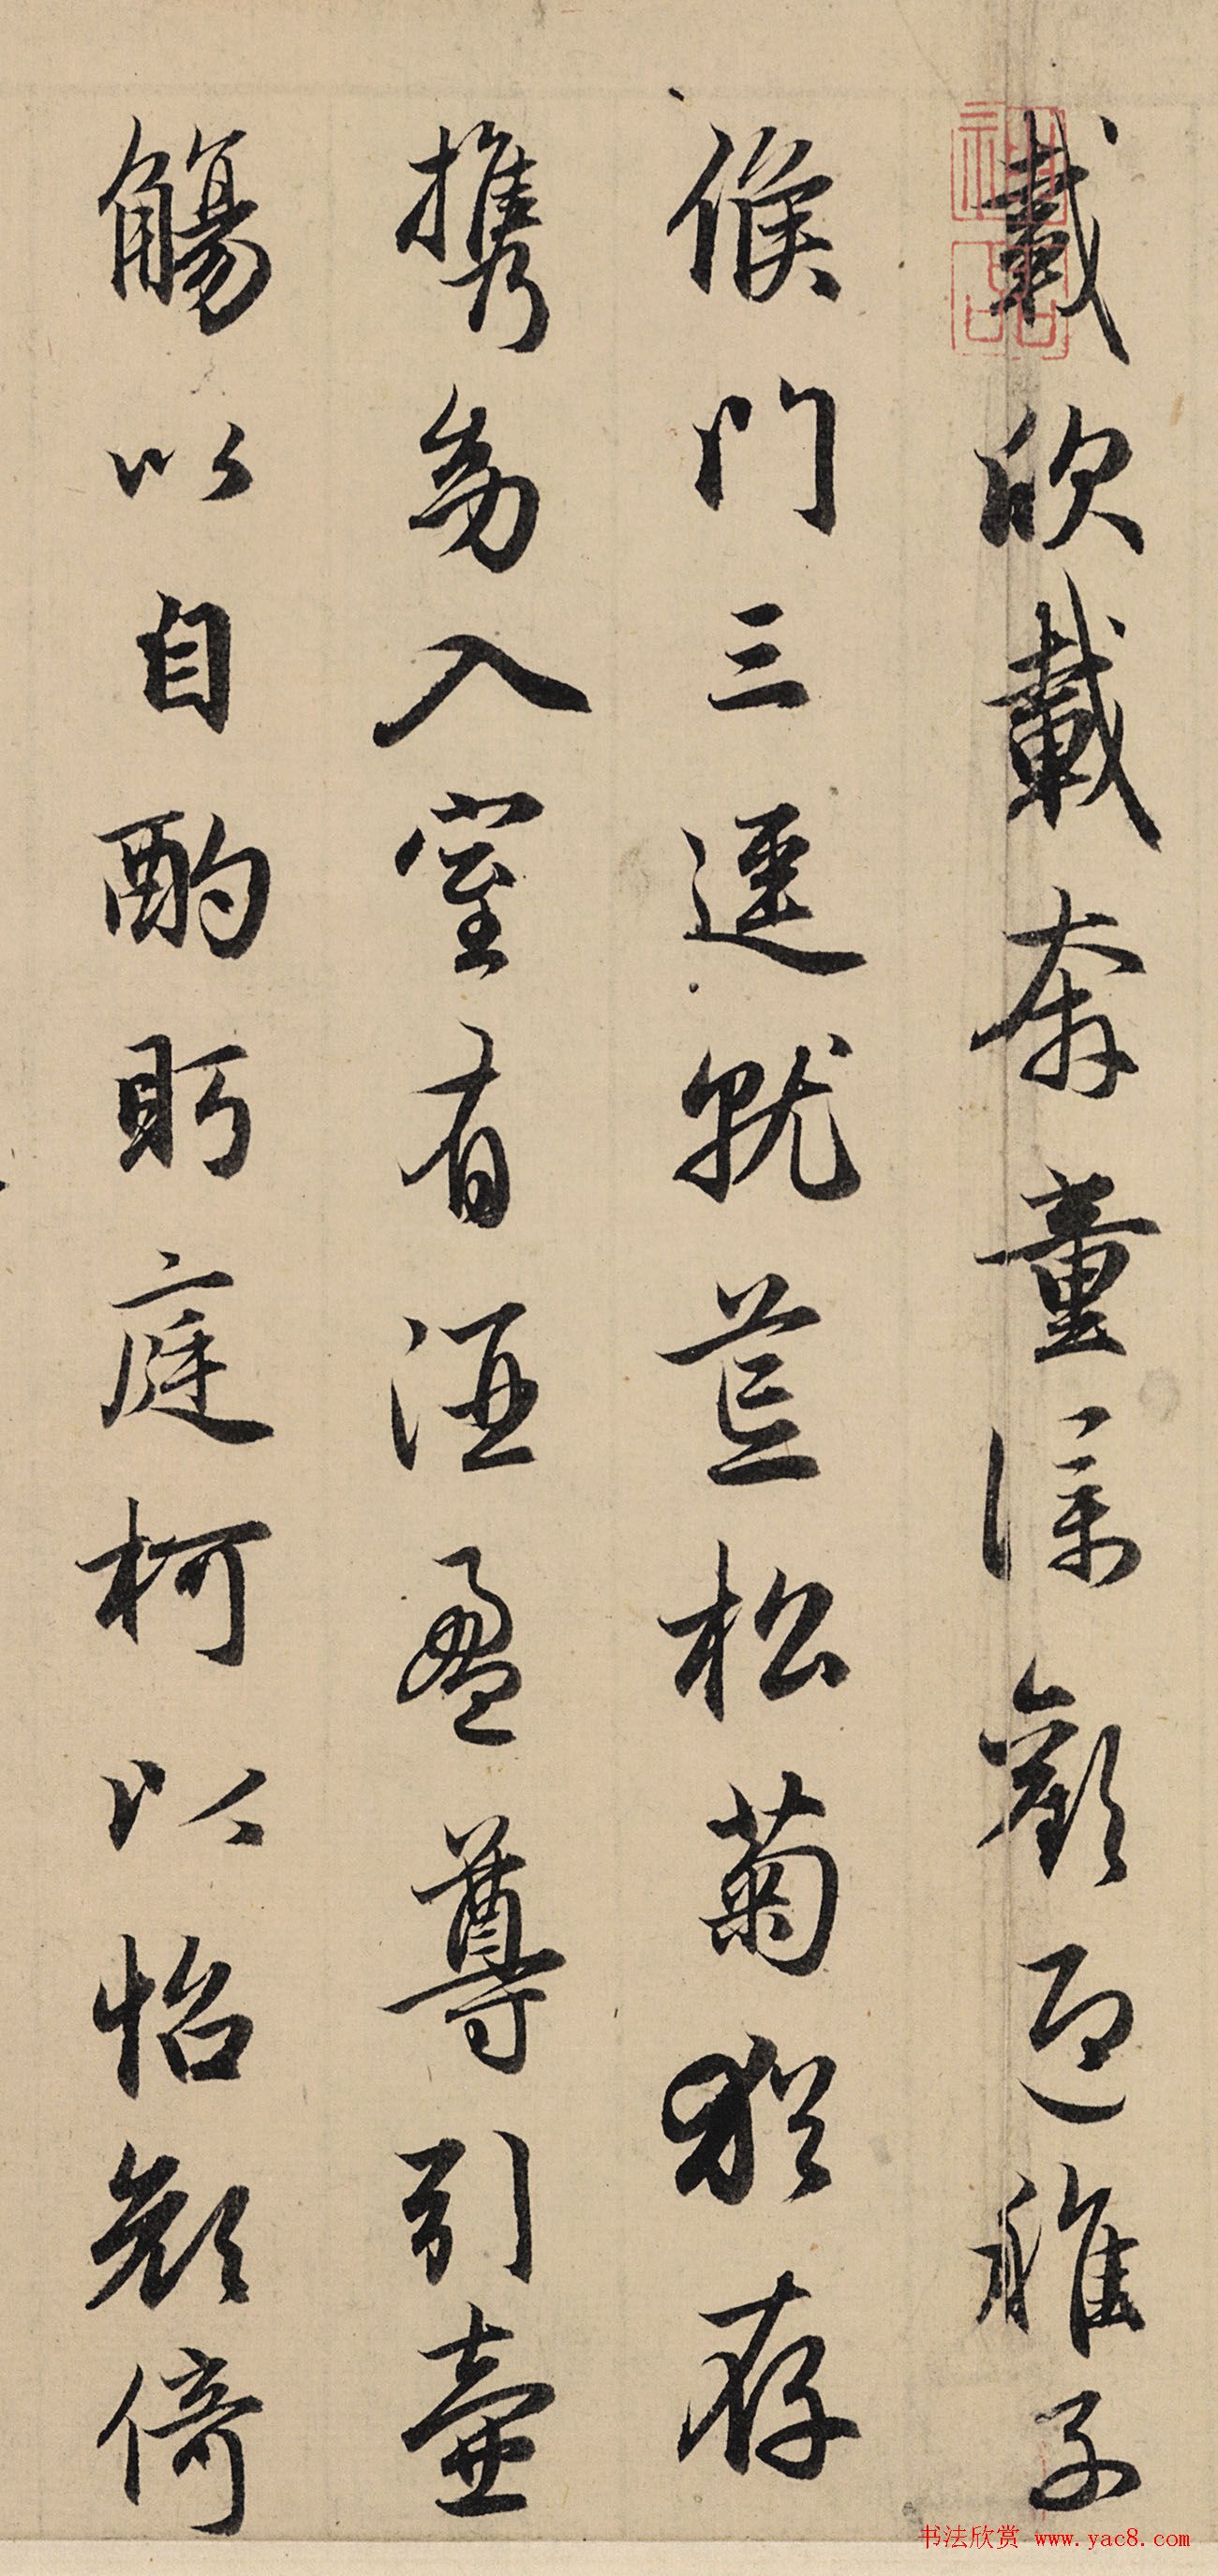 載欣載奔童僕歡迎稚子
候門三逕就荒松菊猶存
携幼入室有酒盈尊引壺
觴以自酌眄庭柯以怡顔倚
书法欣赏 www.yac8.com